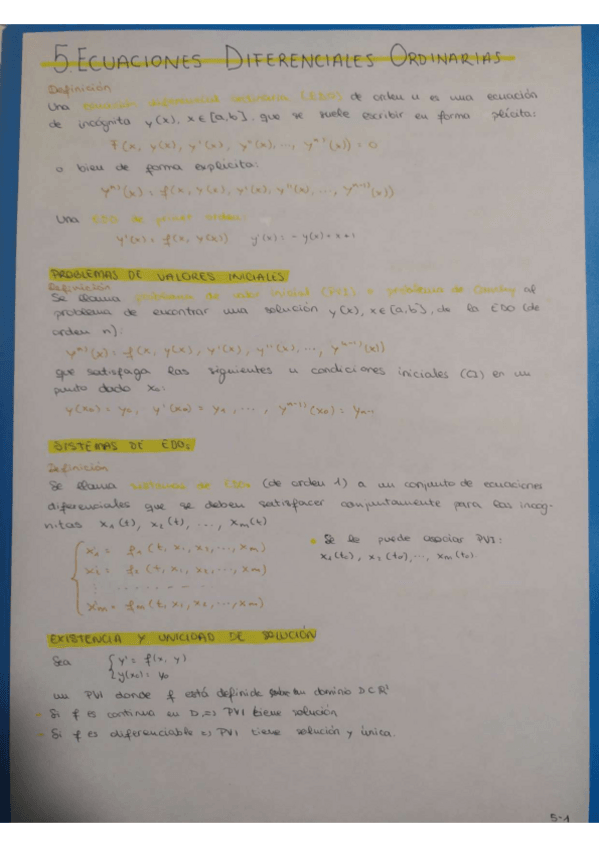 5. ECUACIONES DIFERENCIALES ORDINARIAS
Definición
Una ecuación diferencial ordinaria (EDO) de orden n es una ecuación
de incógnita y(x), x∈[a,b], que se suele escribir en forma plícita:
F(x, y(x), y'(x), y''(x), ..., yⁿ⁾(x)) = 0
o bien de forma explícita:
yⁿ⁾(x) = f(x, y(x), y'(x), y''(x), ..., yⁿ⁻¹⁾(x))
Una EDO de primer orden:
y'(x) = f(x, y(x)) y'(x) = -y(x) + x + 1
PROBLEMAS DE VALORES INICIALES
Definición
Se llama problema de valor inicial (PVI) o problema de Cauchy al
problema de encontrar una solución y(x), x∈[a,b], de la EDO (de
orden n):
yⁿ⁾(x) = f(x, y(x), y'(x), y''(x), ..., yⁿ⁻¹⁾(x))
que satisfaga las siguientes n condiciones iniciales (CI) en un
punto dado x₀:
y(x₀) = y₀, y'(x₀) = y₁, ..., yⁿ⁻¹⁾(x₀) = yₙ₋₁
SISTEMAS DE EDOs
Definición
Se llama sistemas de EDOs (de orden 1) a un conjunto de ecuaciones
diferenciales que se deben satisfacer conjuntamente para las incóg-
nitas x₁(t), x₂(t), ..., xₘ(t)
x₁' = f₁(t, x₁, x₂, ..., xₘ)
x₂' = f₂(t, x₁, x₂, ..., xₘ)
..........
xₘ' = fₘ(t, x₁, x₂, ..., xₘ)
• Se le puede asociar PVI:
x₁(t₀), x₂(t₀), ..., xₘ(t₀)
EXISTENCIA Y UNICIDAD DE SOLUCIÓN
Sea { y' = f(x, y)
y(x₀) = y₀
un PVI donde f está definida sobre un dominio D⊂R²
- Si f es continua en D => PVI tiene solución
- Si f es diferenciable => PVI tiene solución y única.
5-1